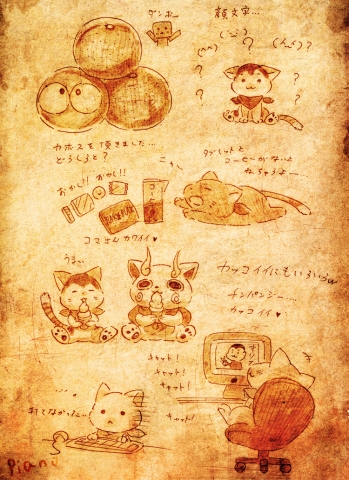 ダンボー
顔文字…
？
？
？
？
カボスを頂きました…
どうしろと？
タブレットと
コーヒーがないと
ねちゃうよ…
おかし!! おかし!!
コマさんカワイイ♥
うまい
カッコイイにもいろいろ
チンパンジー…
カッコイイ♥
キャット!
キャット!
キャット!
キャット!
打てなかった…
Piano